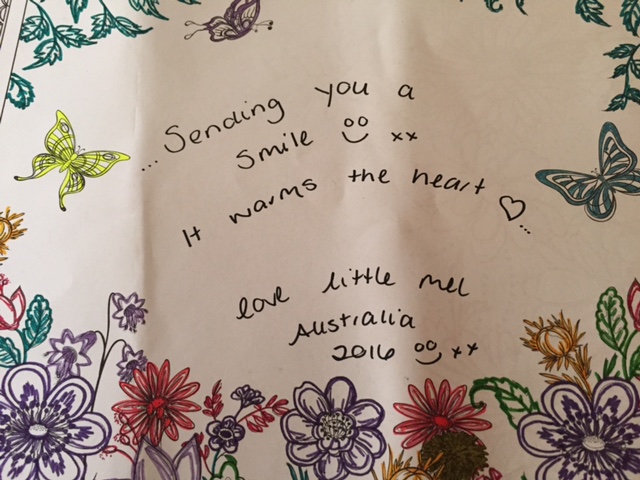 ...Sending you a
smile xx
It warms the heart ♡...
love little mel
Australia
2016 xx